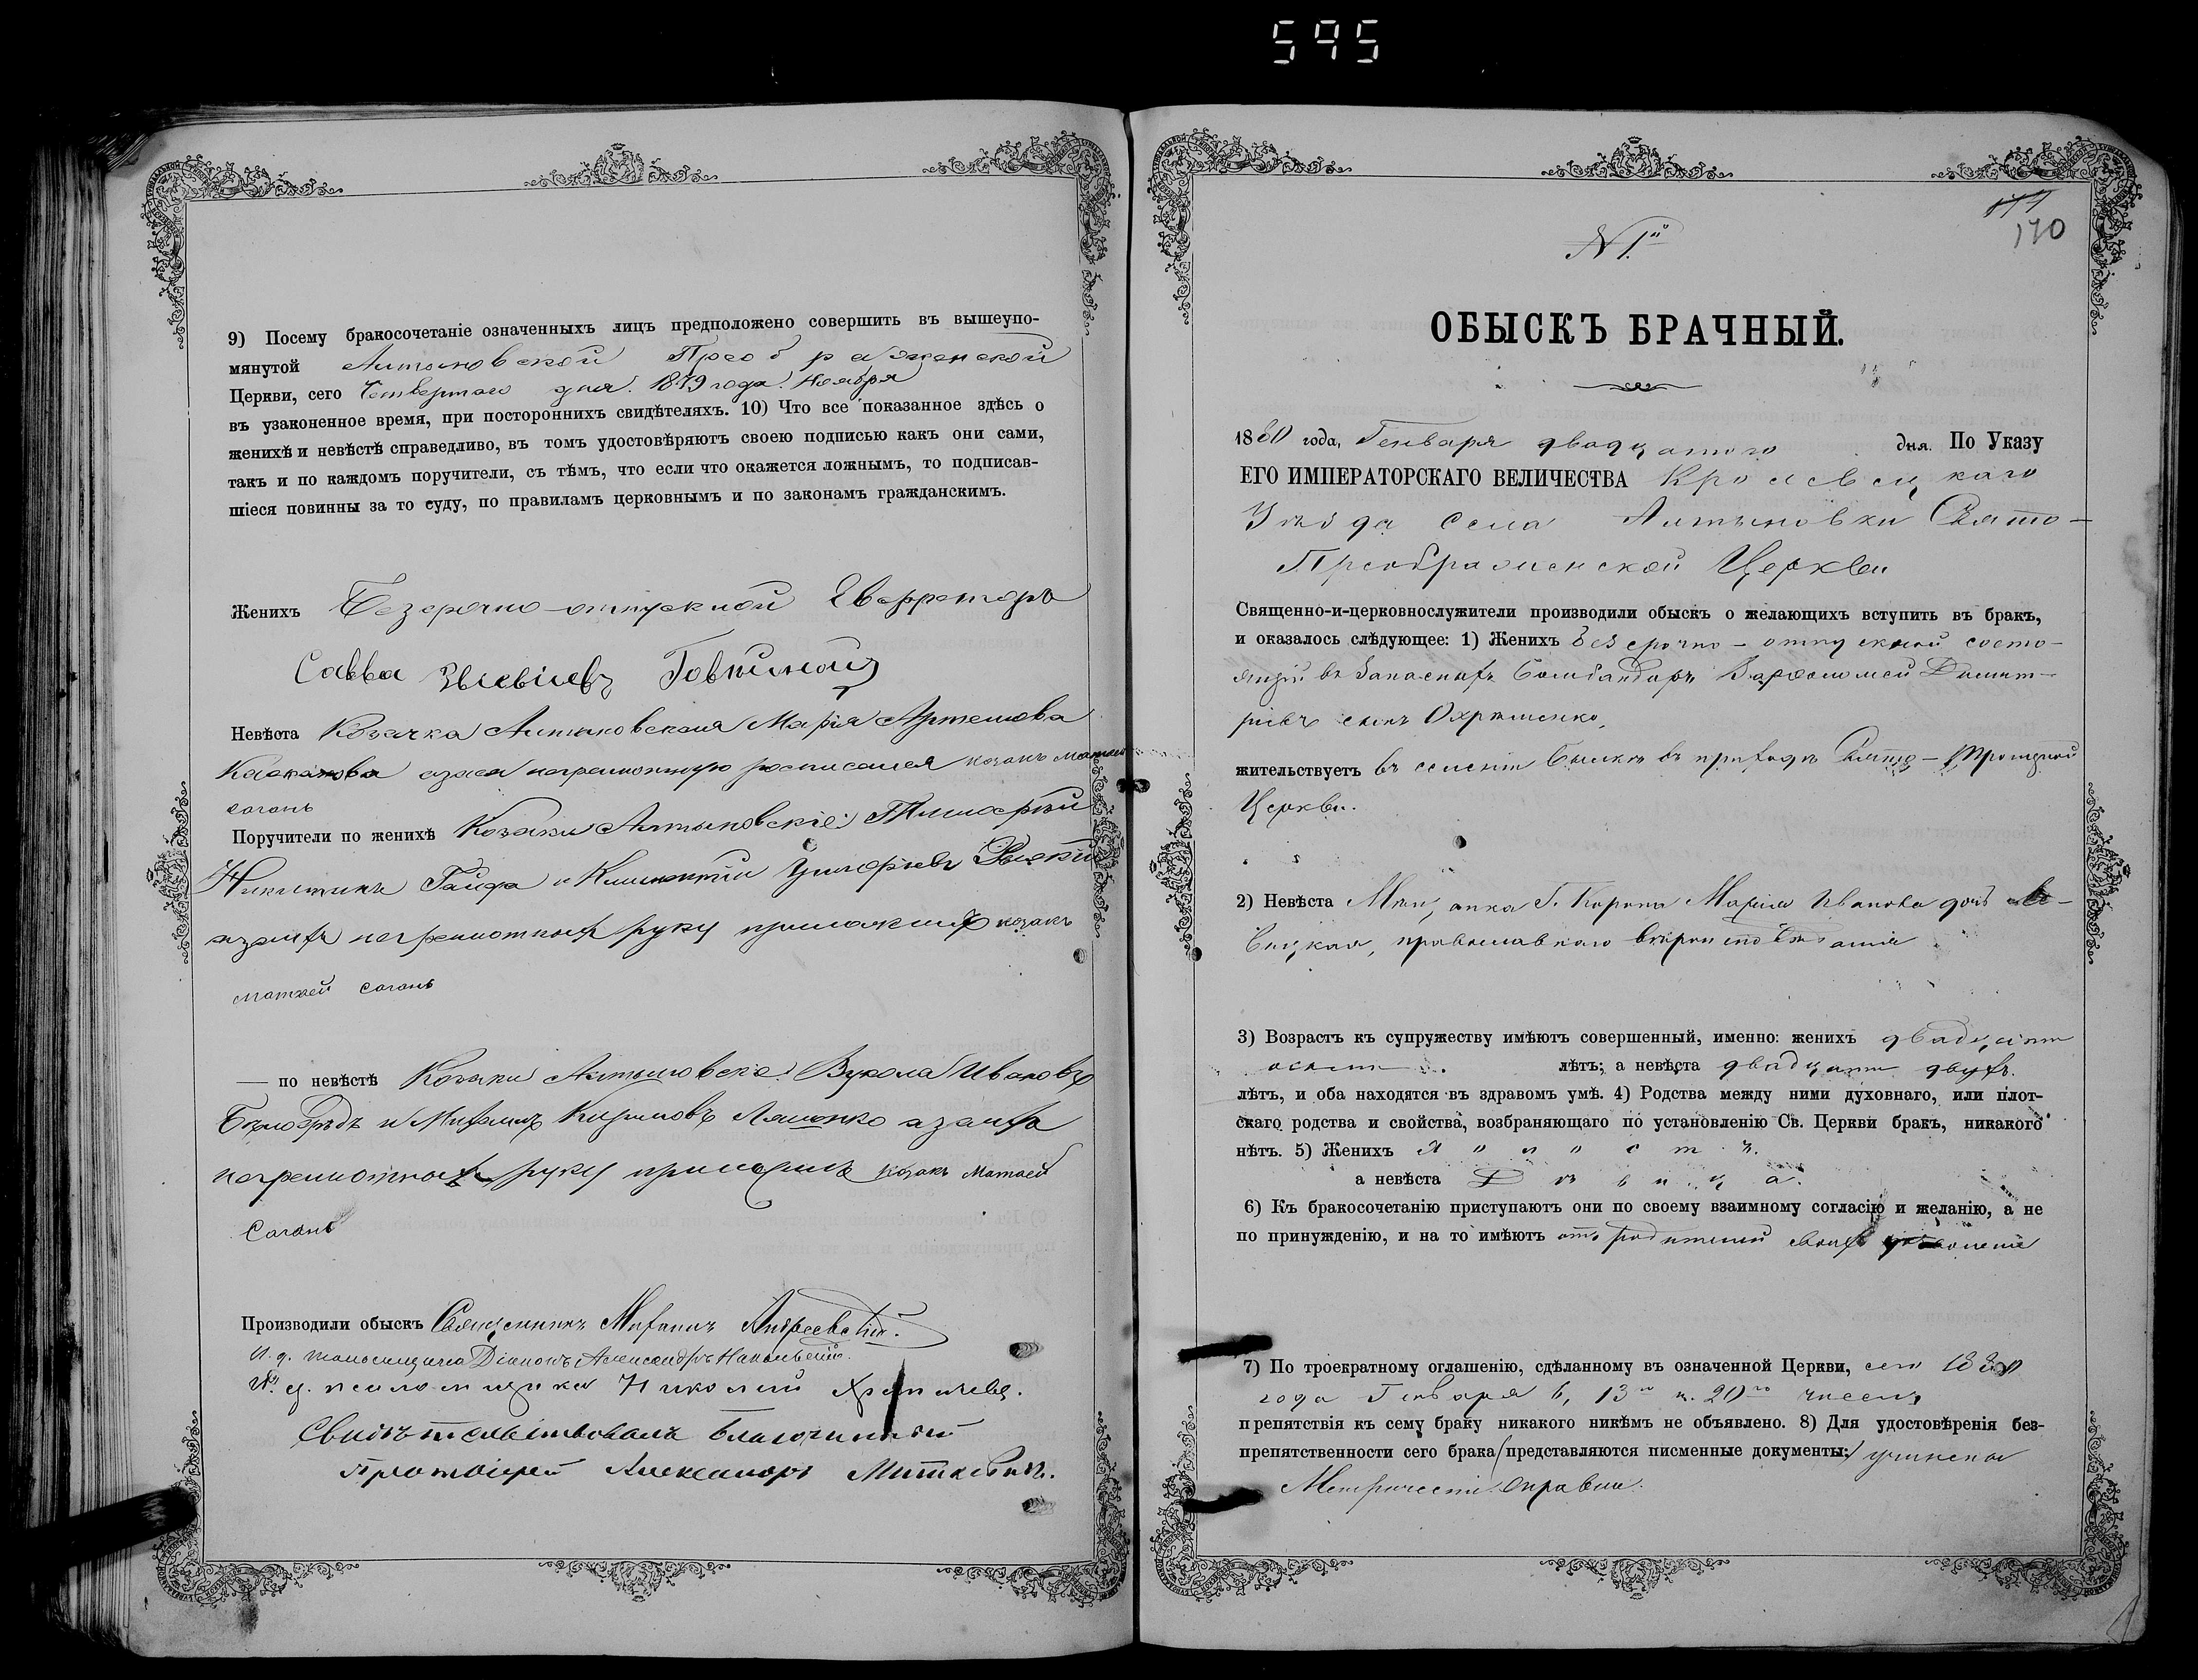 595
9) Посему бракосочетаніе означенныхъ лицъ предположено совершить въ вышеупо-
мянутой Алтыновской Преображенской
Церкви, сего Четвертого дня. 1879 года. Ноября
въ узаконенное время, при постороннихъ свидѣтеляхъ. 10) Что все показанное здѣсь о
женихѣ и невѣстѣ справедливо, въ томъ удостовѣряютъ своею подписью какъ они сами,
такъ и по каждомъ поручители, съ тѣмъ, что если что окажется ложнымъ, то подписав-
шіеся повинны за то суду, по правиламъ церковнымъ и по законамъ гражданскимъ.
Женихъ Безсрочно-отпускной Ефрейторъ
Савва
Невѣста Козачка Алтыновская Марія Артемова
неграмотную росписался козакъ Матвей
сагань
Поручители по женихѣ Козаки Алтыновскіе: Тимофѣй
Никитинъ Гайда и Климентій
азатѣ неграмотныхъ руку приложилъ козакъ
матвей сагань
— по невѣстѣ Козаки Алтыновскіе: Вукола Ивановъ
и Михаилъ Кириловъ Ляшенко азанихъ
неграмотныхъ руку приложилъ козакъ Матвей
Сагань
Производили обыскъ Священникъ Михаилъ Андреевскій.
И. д. псаломщика Діаконъ Александръ
И. д. псаломщика Николай
Свидѣтельствовалъ Благочинный
Протоіерей Александръ Миткевичъ.
171
170
N 1.й
ОБЫСКЪ БРАЧНЫЙ.
1880 года, Генваря двадцатого дня. По Указу
ЕГО ИМПЕРАТОРСКАГО ВЕЛИЧЕСТВА Кролевецкаго
Уѣзда села Алтыновки Свято-
Преображенской Церкви
Священно-и-церковнослужители производили обыскъ о желающихъ вступить въ бракъ,
и оказалось слѣдующее: 1) Женихъ безсрочно-отпускной состо-
ящій въ Запасныхъ Бомбандиръ Варфоломей Димит-
ріевъ сынъ Охрименко,
жительствуетъ въ селеніи Быкахъ въ приходѣ Свято-Троицкой
Церкви.
2) Невѣста Мѣщанка Г. Коропа Марія Иванова дочь
вицкая, православнаго вѣроисповѣданія
3) Возрастъ къ супружеству имѣютъ совершенный, именно: женихъ двадцати
осьми лѣтъ; а невѣста двадцати двухъ.
лѣтъ, и оба находятся въ здравомъ умѣ. 4) Родства между ними духовнаго, или плот-
скаго родства и свойства, возбраняющаго по установленію Св. Церкви бракъ, никакого
нѣтъ. 5) Женихъ Холостъ.
а невѣста Дѣвица.
6) Къ бракосочетанію приступаютъ они по своему взаимному согласію и желанію, а не
по принужденію, и на то имѣютъ отъ родителей своихъ дозволеніе
7) По троекратному оглашенію, сдѣланному въ означенной Церкви, сего 1880
года Генваря 6, 13го и 20го чиселъ,
препятствія къ сему браку никакого никѣмъ не объявлено. 8) Для удостовѣренія без-
препятственности сего брака (представляются писменные документы:) учинены
Метрическіе Справки.